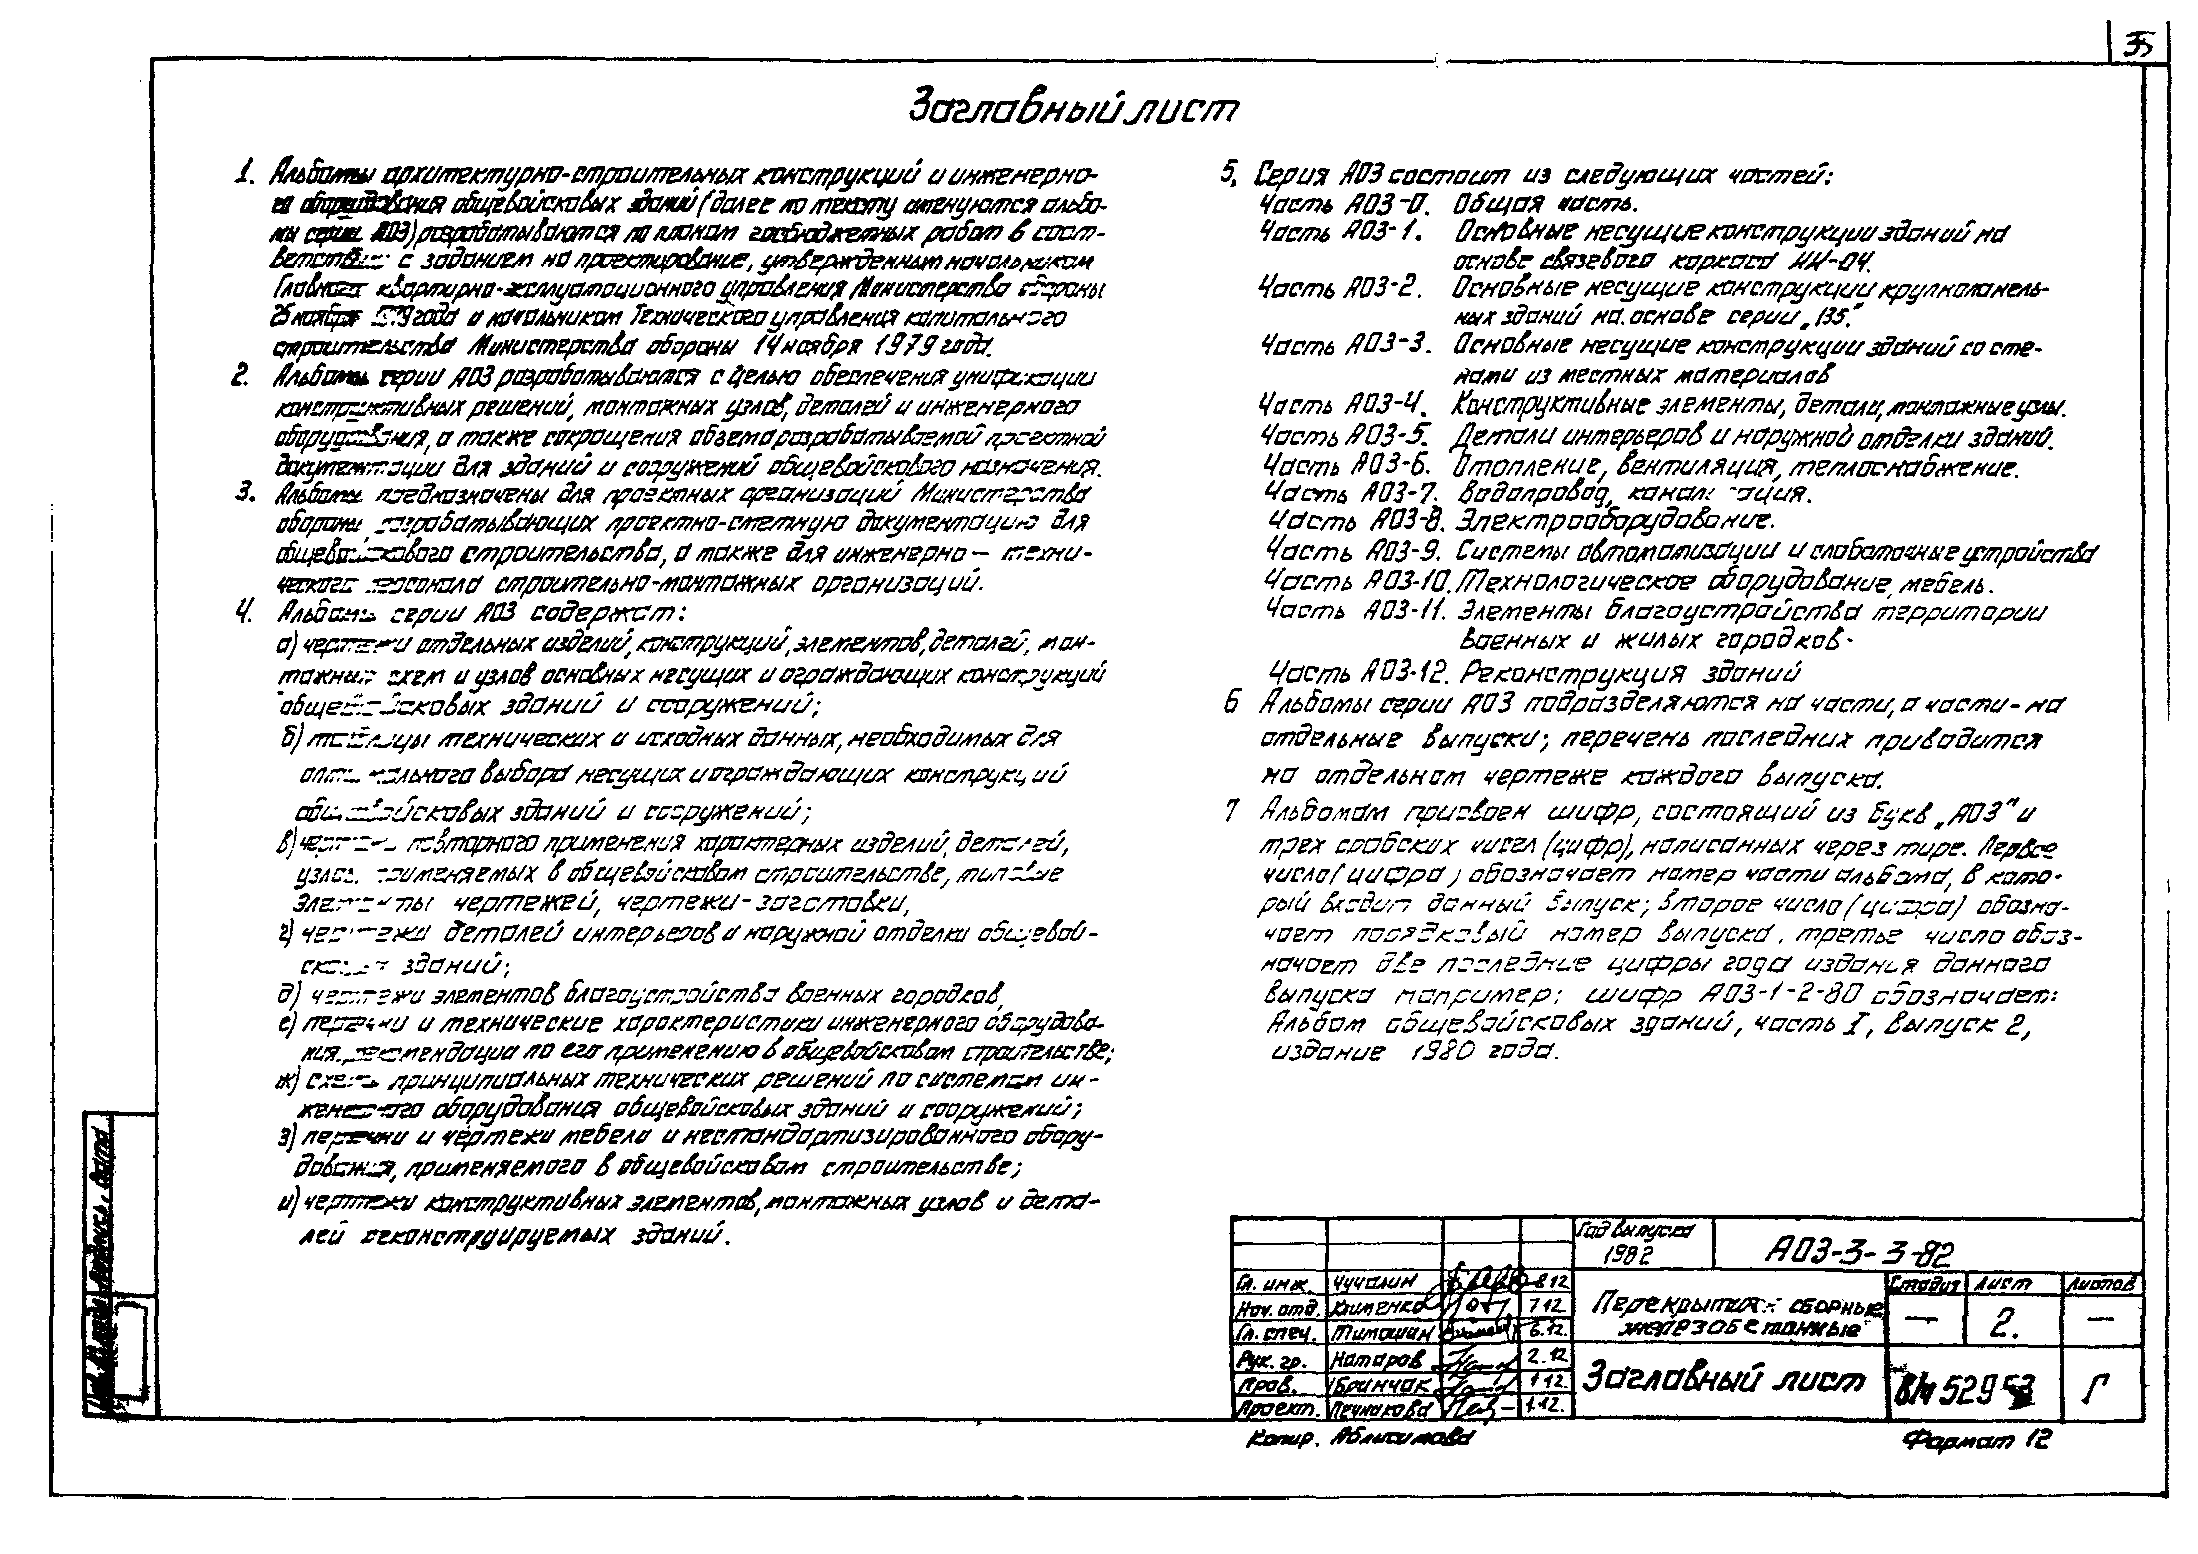 35
Заглавный лист
1. Альбомы архитектурно-строительных конструкций и инженерно-
го оборудования общевойсковых зданий (далее по тексту именуются альбо-
мы серии А03) разрабатываются по планам госбюджетных работ в соот-
ветствии с заданием на проектирование, утвержденным начальником
Главного квартирно-эксплуатационного управления Министерства обороны
ноября 1979 года и начальником Технического управления капитального
строительства Министерства обороны 14 ноября 1979 года.
2. Альбомы серии А03 разрабатываются с целью обеспечения унификации
конструктивных решений, монтажных узлов, деталей и инженерного
оборудования, а также сокращения объема разрабатываемой проектной
документации для зданий и сооружений общевойскового назначения.
3. Альбомы предназначены для проектных организаций Министерства
обороны разрабатывающих проектно-сметную документацию для
общевойскового строительства, а также для инженерно – техни-
ческого персонала строительно-монтажных организаций.
4. Альбомы серии А03 содержат:
а) чертежи отдельных изделий, конструкций, элементов, деталей, мон-
тажных схем и узлов основных несущих и ограждающих конструкций
общевойсковых зданий и сооружений;
б) таблицы технических и исходных данных, необходимых для
оптимального выбора несущих и ограждающих конструкций
общевойсковых зданий и сооружений;
в) чертежи повторного применения характерных изделий, деталей,
узлов, применяемых в общевойсковом строительстве, типовые
элементы чертежей, чертежи-заготовки,
г) чертежи деталей интерьеров и наружной отделки общевой-
сковых зданий;
д) чертежи элементов благоустройства военных городков,
е) перечни и технические характеристики инженерного оборудова-
ния, рекомендации по его применению в общевойсковом строительстве;
ж) схемы принципиальных технических решений по системам ин-
женерного оборудования общевойсковых зданий и сооружений;
з) перечни и чертежи мебели и нестандартизированного обору-
дования, применяемого в общевойсковом строительстве;
и) чертежи конструктивных элементов, монтажных узлов и дета-
лей реконструируемых зданий.
5. Серия А03 состоит из следующих частей:
Часть А03-0. Общая часть.
Часть А03-1. Основные несущие конструкции зданий на
основе связевого каркаса ИИ-04.
Часть А03-2. Основные несущие конструкции крупнопанель-
ных зданий на основе серии „135."
Часть А03-3. Основные несущие конструкции зданий со сте-
нами из местных материалов
Часть А03-4. Конструктивные элементы, детали, монтажные узлы.
Часть А03-5. Детали интерьеров и наружной отделки зданий.
Часть А03-6. Отопление, вентиляция, теплоснабжение.
Часть А03-7. Водопровод, канализация.
Часть А03-8. Электрооборудование.
Часть А03-9. Системы автоматизации и слаботочные устройства
Часть А03-10. Технологическое оборудование, мебель.
Часть А03-11. Элементы благоустройства территории
военных и жилых городков.
Часть А03-12. Реконструкция зданий
6 Альбомы серии А03 подразделяются на части, а части - на
отдельные выпуски; перечень последних приводится
на отдельном чертеже каждого выпуска.
7 Альбомам присвоен шифр, состоящий из букв „А03" и
трех арабских чисел (цифр), написанных через тире. Первое
число (цифра) обозначает номер части альбома, в кото-
рый входит данный выпуск; второе число (цифра) обозна-
чает порядковый номер выпуска, третье число обоз-
начает две последние цифры года издания данного
выпуска например: шифр А03-1-2-80 обозначает:
Альбом общевойсковых зданий, часть I, выпуск 2,
издание 1980 года.
Год выпуска
1982
А03-3-3-82
Гл. инж. Чучалин 8.12
Нач. отд. Клименко 7.12
Гл. спец. Тимошин 6.12.
Рук. гр. Натаров 2.12
Пров. Бринчак 1.12.
Проект. Печнакова 1.12.
Перекрытия сборные
железобетонные
Стадия Лист Листов
— 2. —
Заглавный лист
52953 Г
Копир. Аблисимова
Формат 12